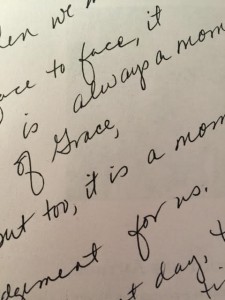 en we m
ace to face, it
is always a mom
of Grace,
but too, it is a mom
dgement for us.
t day, t